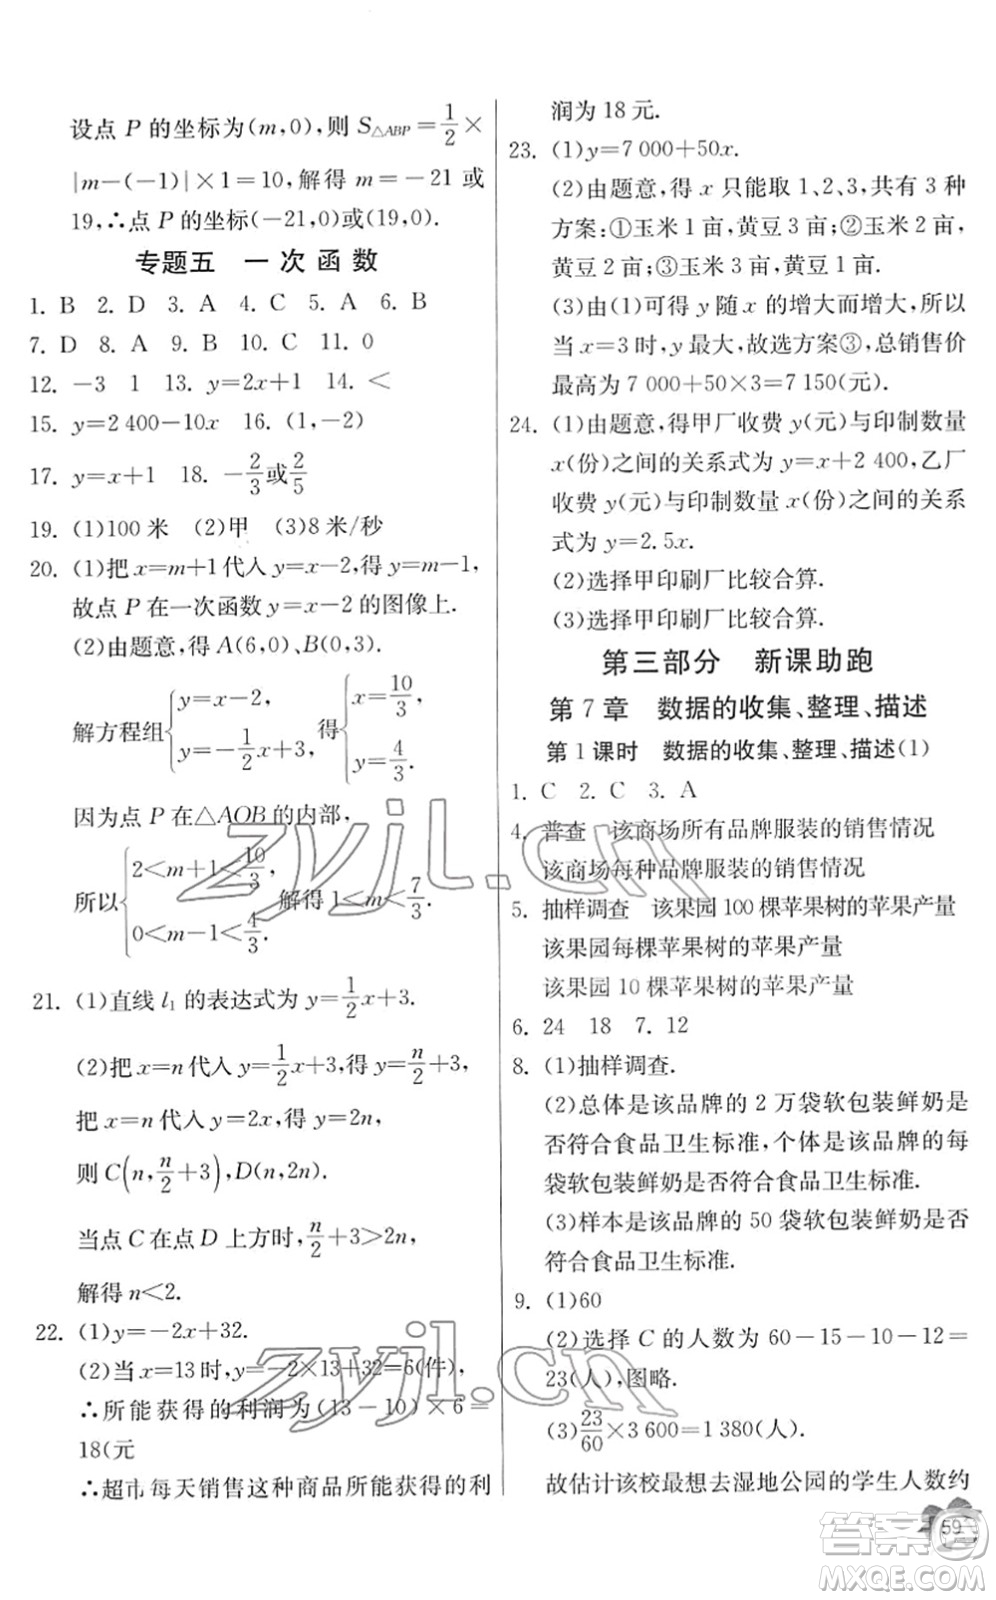 设点 P 的坐标为(m,0),则 S△ABP=1/2×
|m-(-1)|×1=10,解得 m=-21 或
19,∴点 P 的坐标(-21,0)或(19,0).
专题五 一次函数
1. B 2. D 3. A 4. C 5. A 6. B
7. D 8. A 9. B 10. C 11. 0
12. -3 1 13. y=2x+1 14. <
15. y=2 400-10x 16. (1,-2)
17. y=x+1 18. -2/3或2/5
19. (1)100 米 (2)甲 (3)8 米/秒
20. (1)把 x=m+1 代入 y=x-2,得 y=m-1,
故点 P 在一次函数 y=x-2 的图像上.
(2)由题意,得 A(6,0)、B(0,3).
解方程组{y=x-2, y=-1/2x+3, 得{x=10/3, y=4/3.
因为点 P 在△AOB 的内部,
所以{2<m+1<10/3, 0<m-1<4/3. 解得 1<m<7/3.
21. (1)直线 l₁ 的表达式为 y=1/2x+3.
(2)把 x=n 代入 y=1/2x+3,得 y=n/2+3,
把 x=n 代入 y=2x,得 y=2n,
则 C(n,n/2+3),D(n,2n).
当点 C 在点 D 上方时,n/2+3>2n,
解得 n<2.
22. (1)y=-2x+32.
(2)当 x=13 时,y=-2×13+32=6(件),
∴所能获得的利润为(13-10)×6=
18(元
∴超市每天销售这种商品所能获得的利
润为 18 元.
23. (1)y=7 000+50x.
(2)由题意,得 x 只能取 1、2、3,共有 3 种
方案:①玉米 1 亩,黄豆 3 亩;②玉米 2 亩,
黄豆 2 亩;③玉米 3 亩,黄豆 1 亩.
(3)由(1)可得 y 随 x 的增大而增大,所以
当 x=3 时,y 最大,故选方案③,总销售价
最高为 7 000+50×3=7 150(元).
24. (1)由题意,得甲厂收费 y(元)与印制数量
x(份)之间的关系式为 y=x+2 400,乙厂
收费 y(元)与印制数量 x(份)之间的关系
式为 y=2.5x.
(2)选择甲印刷厂比较合算.
(3)选择甲印刷厂比较合算.
第三部分 新课助跑
第 7 章 数据的收集、整理、描述
第 1 课时 数据的收集、整理、描述(1)
1. C 2. C 3. A
4. 普查 该商场所有品牌服装的销售情况
该商场每种品牌服装的销售情况
5. 抽样调查 该果园 100 棵苹果树的苹果产量
该果园每棵苹果树的苹果产量
该果园 10 棵苹果树的苹果产量
6. 24 18 7. 12
8. (1)抽样调查.
(2)总体是该品牌的 2 万袋软包装鲜奶是
否符合食品卫生标准,个体是该品牌的每
袋软包装鲜奶是否符合食品卫生标准.
(3)样本是该品牌的 50 袋软包装鲜奶是否
符合食品卫生标准.
9. (1)60
(2)选择 C 的人数为 60-15-10-12=
23(人),图略.
(3)23/60×3 600=1 380(人).
故估计该校最想去湿地公园的学生人数约
59
zyjl.cn
zyjl.cn
答案圈
MXQE.COM